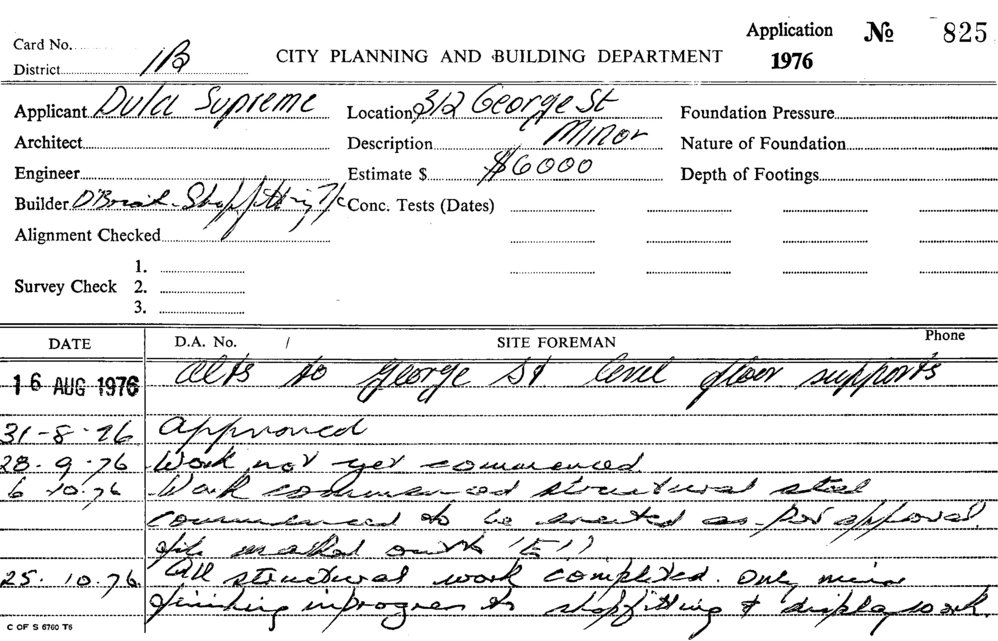 Card No.
District 1B
CITY PLANNING AND BUILDING DEPARTMENT
Application No 825
1976
Applicant Dula Supreme
Location 312 George St
Foundation Pressure
Architect
Description Minor
Nature of Foundation
Engineer
Estimate $ $6000
Depth of Footings
Builder Shopfitting
Conc. Tests (Dates)
Alignment Checked
1.
Survey Check 2.
3.
DATE D.A. No. / SITE FOREMAN Phone
16 AUG 1976 Alts to George St level floor supports
31-8-76 Approved
28.9.76 Work not yet commenced
6 10.76 Work commenced structural steel
commenced to be erected as per approval
marked
25.10.76. All structural work completed. Only minor
finishing in progress to shopfitting & display work.
C OF S 6760 T6